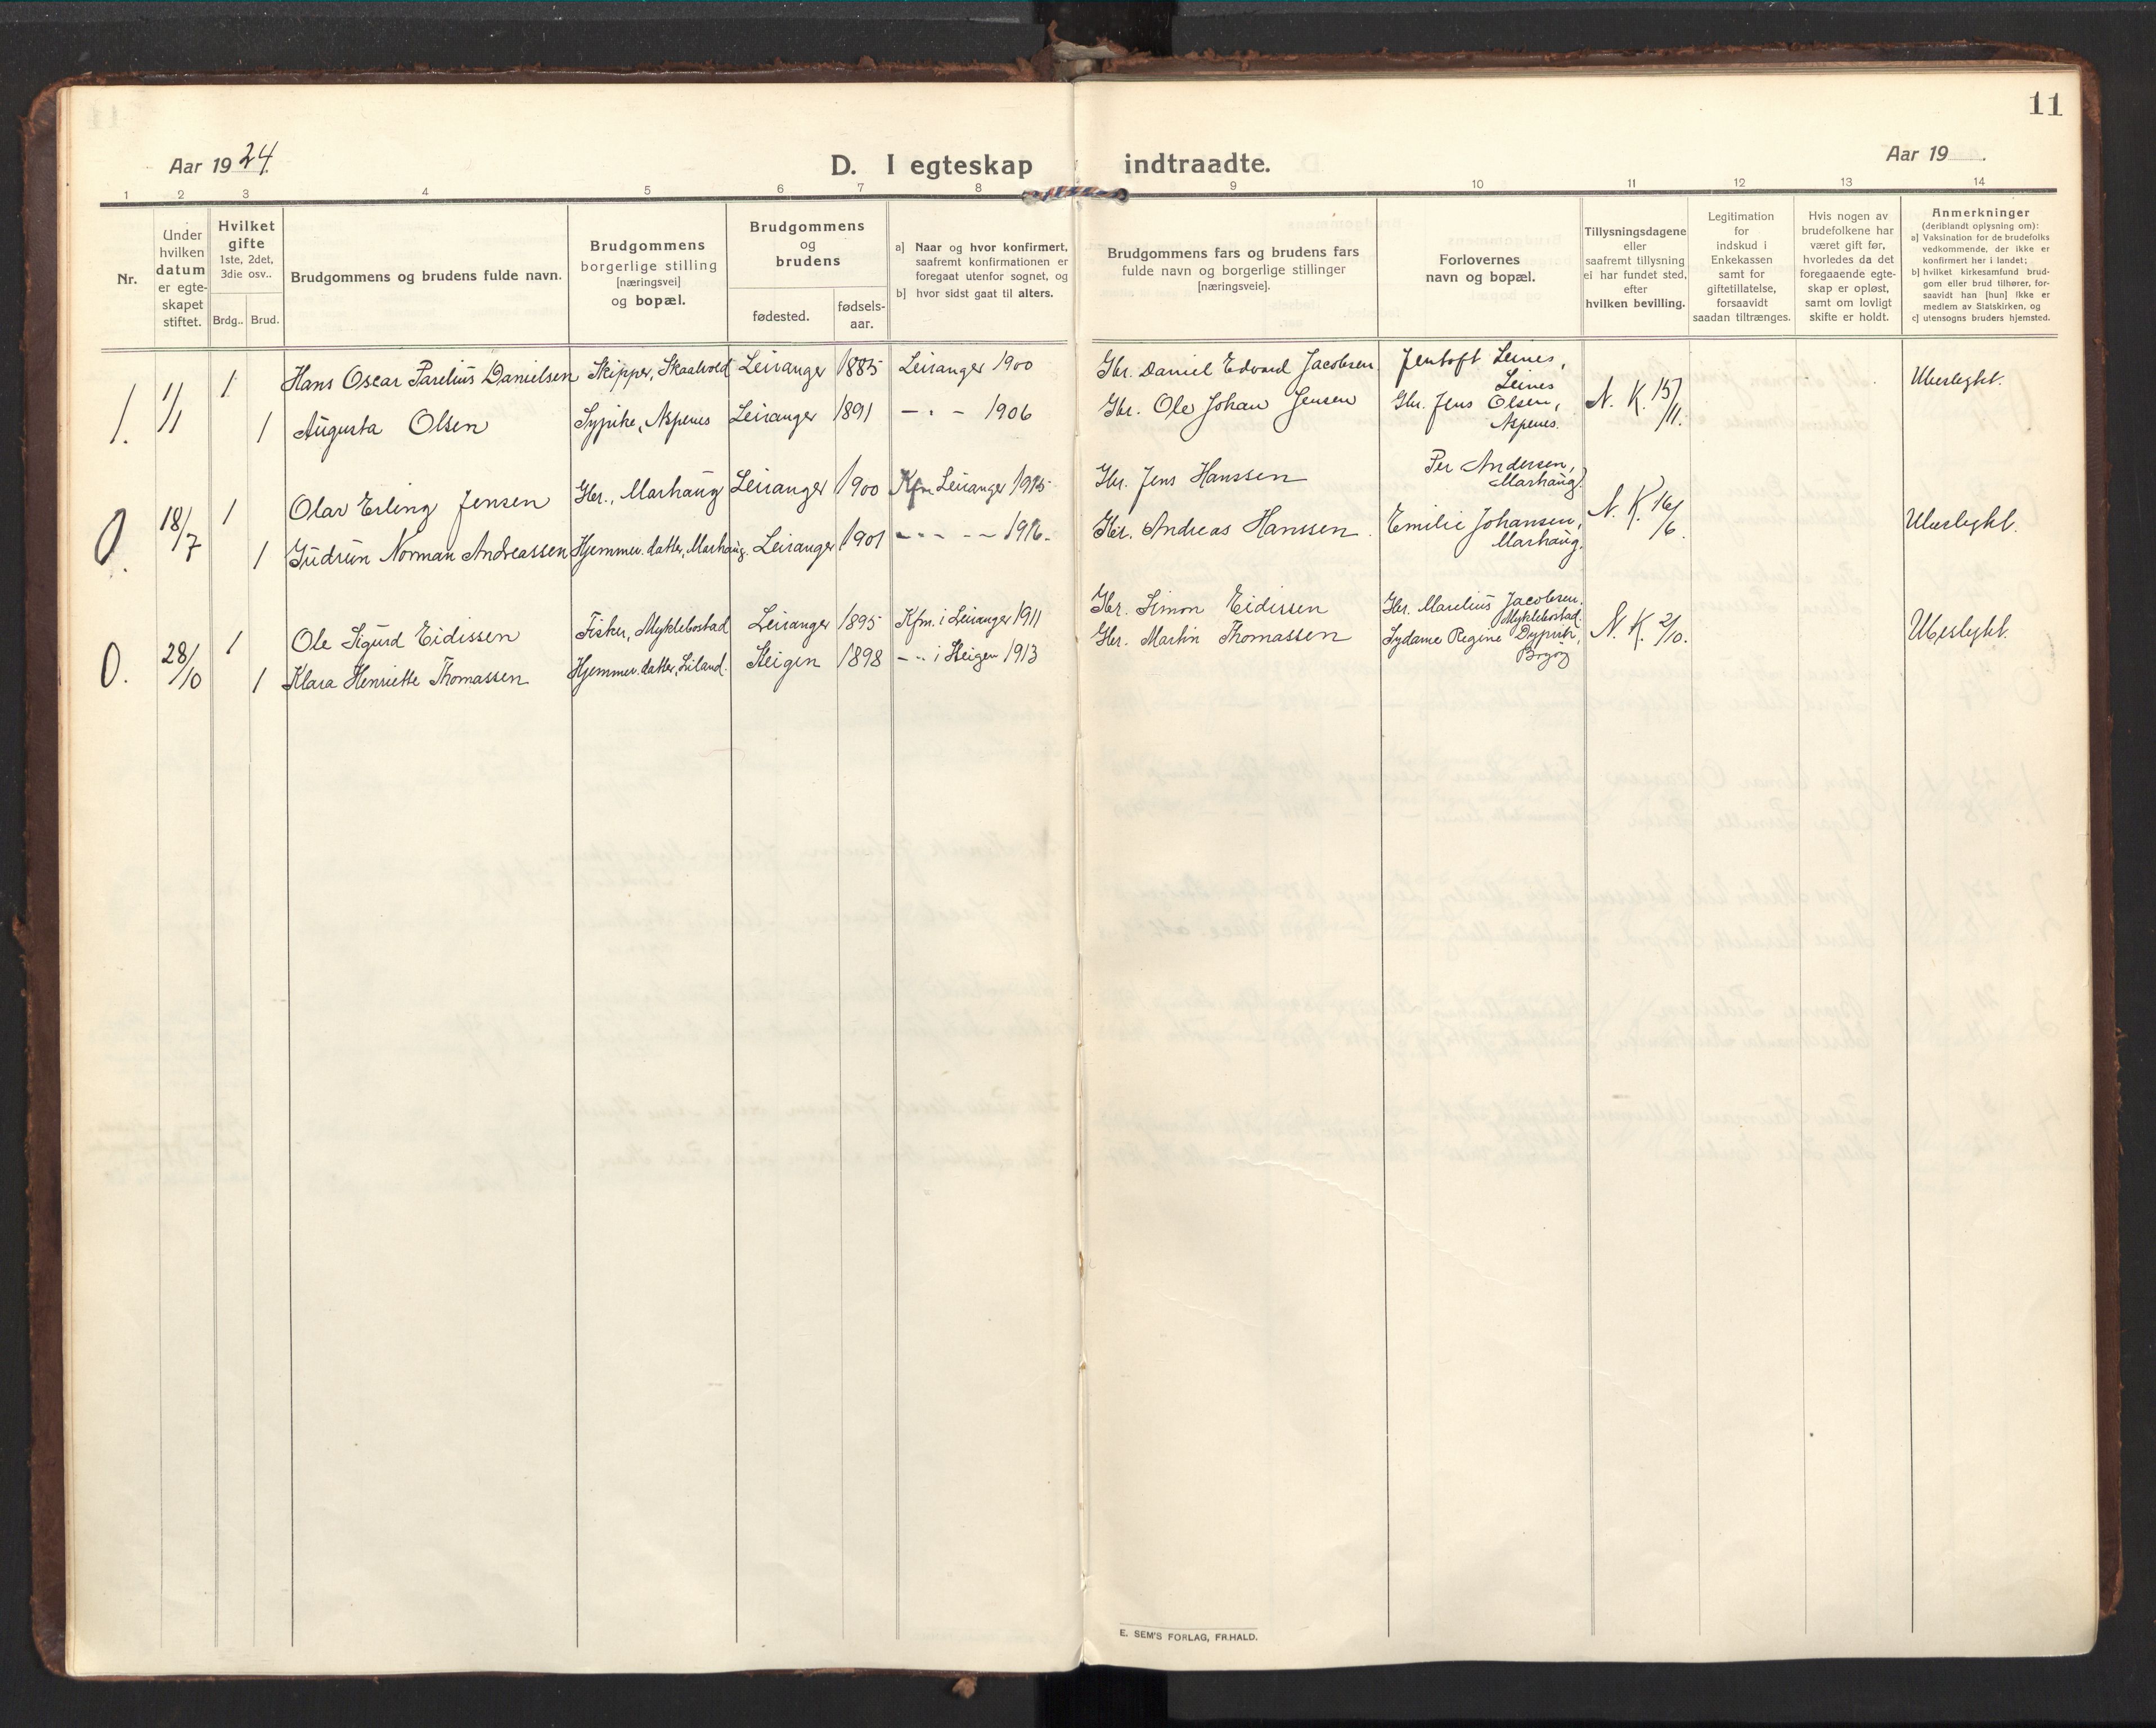 11
Aar 1924.
D. I egteskap indtraadte.
Aar 19
1 2 3 4 5 6 7 8 9 10 11 12 13 14
Nr.
Under
hvilken
datum
er egte-
skapet
stiftet.
Hvilket
gifte
1ste, 2det,
3die osv..
Brdg.. Brud.
Brudgommens og brudens fulde navn.
Brudgommens
borgerlige stilling
[næringsvei]
og bopæl.
Brudgommens
og
brudens
fødested.
fødsels-
aar.
a] Naar og hvor konfirmert,
saafremt konfirmationen er
foregaat utenfor sognet, og
b] hvor sidst gaat til alters.
Brudgommens fars og brudens fars
fulde navn og borgerlige stillinger
[næringsveie].
Forlovernes
navn og bopæl.
Tillysningsdagene
eller
saafremt tillysning
ei har fundet sted,
efter
hvilken bevilling.
Legitimation
for
indskud i
Enkekassen
samt for
giftetillatelse,
forsaavidt
saadan tiltrænges.
Hvis nogen av
brudefolkene har
været gift før,
hvorledes da det
foregaaende egte-
skap er opløst,
samt om lovligt
skifte er holdt.
Anmerkninger
(deriblandt oplysning om):
a] Vaksination for de brudefolks
vedkommende, der ikke er
konfirmert her i landet;
b] hvilket kirkesamfund brud-
gom eller brud tilhører, for-
saavidt han [hun] ikke er
medlem av Statskirken, og
c] utensogns bruders hjemsted.
1. 1/1 1 Hans Oscar Parelius Danielsen Skipper, Skaalvold Leiranger 1885 Leiranger 1900 Gbr. Daniel Edvard Jacobsen Jentoft Leines,
Leines
1 Augusta Olsen Sypike, Aspenes Leiranger 1891 — " — 1906 Gbr. Ole Johan Jensen Gbr. Jens Olsen,
Aspenes.
N. K. 15/11. Ubeslegtet.
0. 18/7 1 Olav Erling Jensen Gbr., Marhaug Leiranger 1900 Kfm Leiranger 1915 Gbr. Jens Hanssen Per Andersen,
Marhaug
1 Gudrun Norman Andreassen Hjemmev. datter, Marhaug. Leiranger 1901 - " - - - 1916. Gbr. Andreas Hanssen Emilie Johansen,
Marhaug.
N. K. 16/6 Ubeslegtet.
0. 28/10 1 Ole Sigurd Eidissen Fisker, Myklebostad Leiranger 1895 Kfm. i Leiranger 1911 Gbr. Simon Eidissen Gbr. Marelius Jacobsen,
Myklebostad.
1 Klara Henriette Thomassen Hjemmev. datter, Leiland. Steigen 1898 - " - i Steigen 1913 Gbr. Martin Thomassen Lydame Regine Dypvik,
Bogøy
N. K. 2/10. Ubeslegtet.
E. SEM'S FORLAG, FR.HALD.